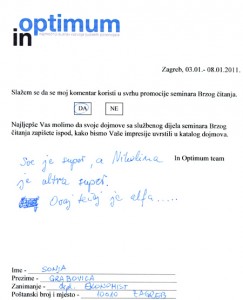 optimum
in
Zagreb, 03.01.- 08.01.2011.
Slažem se da se moj komentar koristi u svrhu promocije seminara Brzog čitanja.
DA NE
Najljepše Vas molimo da svoje dojmove sa službenog dijela seminara Brzog
čitanja zapišete ispod, kako bismo Vaše impresije uvrstili u katalog dojmova.
In Optimum team
Sve je super, a Nikolina
je ultra super.
Ovaj tečaj je
Ime - SONJA
Prezime - GRABOVICA
Zanimanje - dipl. EKONOMIST
Poštanski broj i mjesto - 10000 ZAGREB